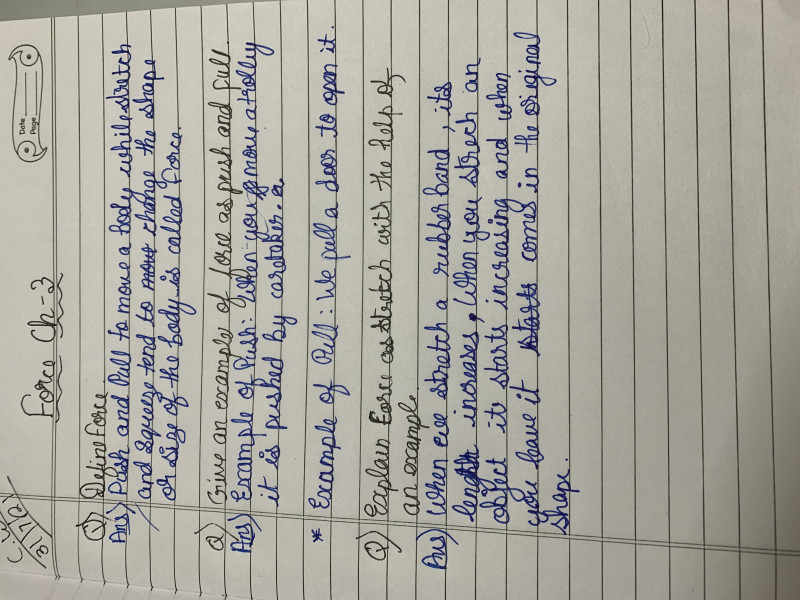 Date
Page
Force Ch-3
Q) Define Force
Ans) Push and Pull to move a body while stretch
and squeeze tend to change the shape
or size of the body is called Force.
Q) Give an example of force as push and pull.
Ans) Example of Push: When you move a trolley
it is pushed by caretaker.
* Example of Pull: We pull a door to open it.
Q) Explain Force as stretch with the help of
an example.
Ans) When we stretch a rubber band, its
length increases, When you strech an
object it starts increasing and when
you leave it comes in the original
shape.